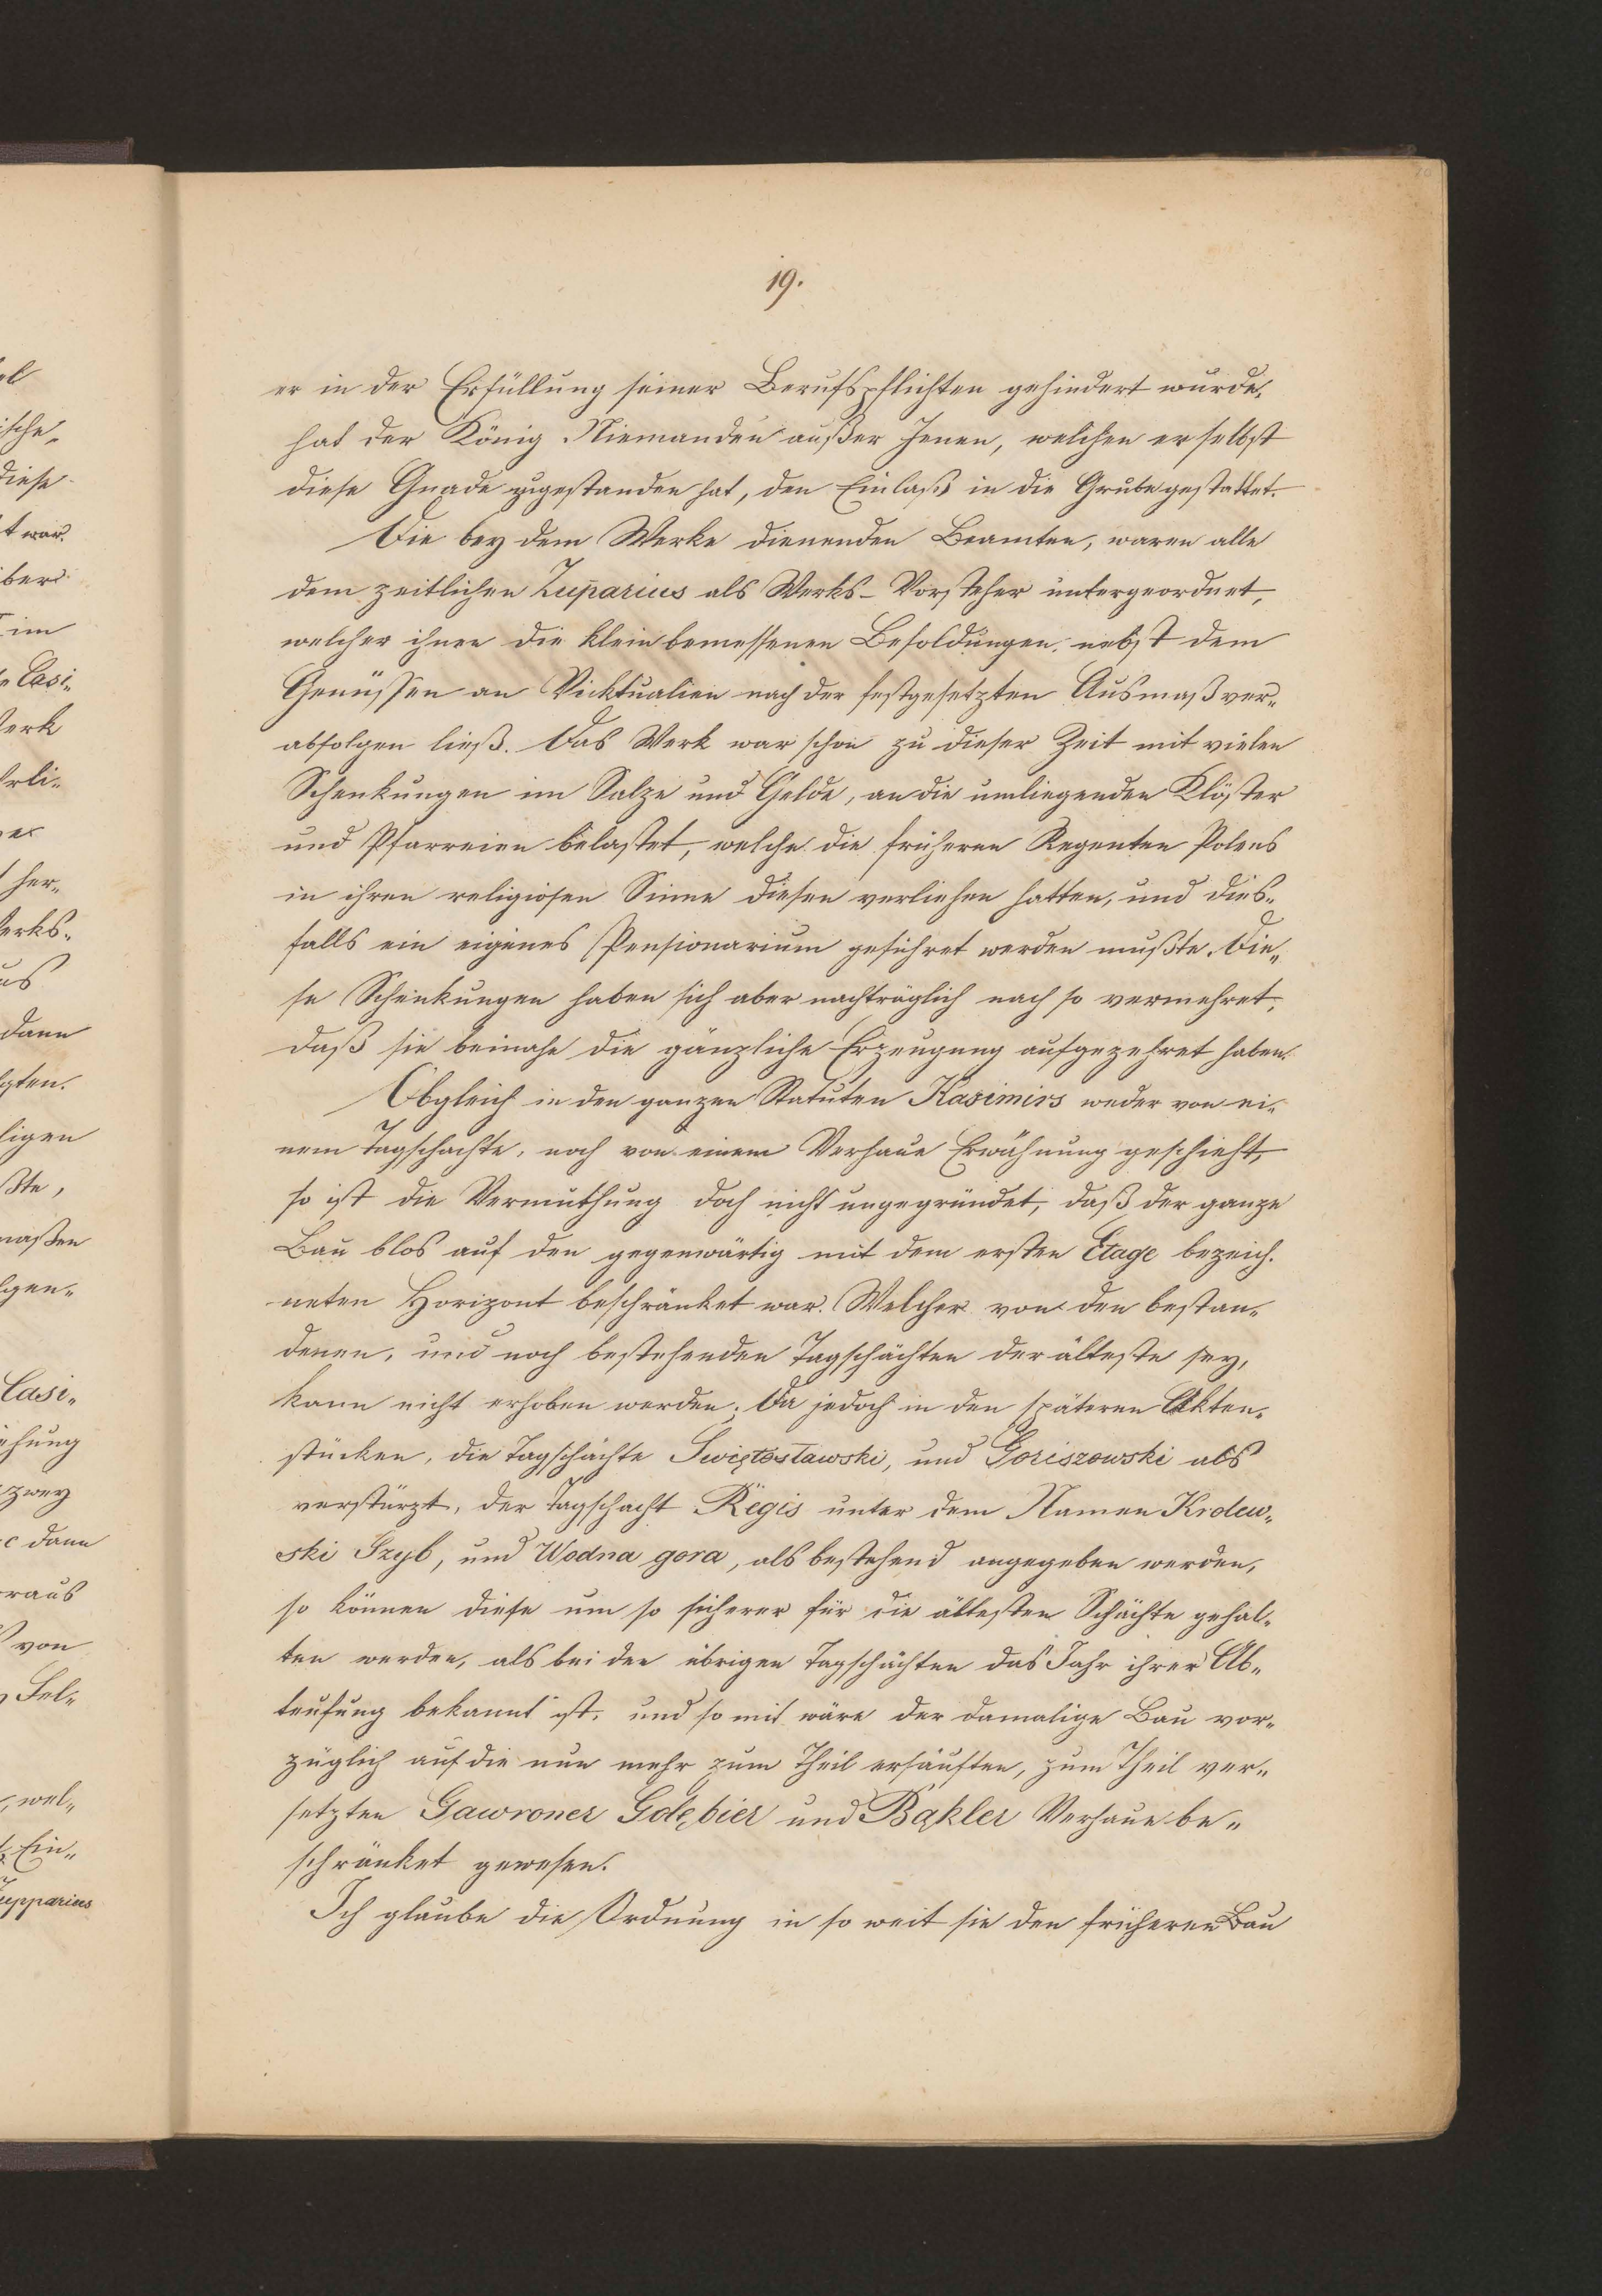 19.
er in der Erfüllung seiner Berufspflichten gehindert wurde,
hat der König Niemanden außer Jenen, welchen er selbst
diese Gnade zugestanden hat, den Einlaß in die Grube gestattet.
Die bey dem Werke dienenden Beamten, waren alle
dem zeitlichen Zuparius als Werks-Vorsteher untergeordnet,
welcher ihnen die klein bemessenen Besoldungen, nebst dem
Genüssen an Vicktualien nach der festgesetzten Ausmaß ver„
abfolgen ließ. Das Werk war schon zu dieser Zeit mit vielen
Schenkungen im Salze und Gelde, an die umliegenden Klöster
und Pfarreien belastet, welche die früheren Regenten Polens
in ihren religiosen Sinne diesen verliehen hatten, und dies„
falls ein eigenes Pensionarium geführet werden mußte. Die„
se Schenkungen haben sich aber nachträglich noch so vermehret,
daß sie beinahe die gänzliche Erzeugung aufgezehret haben.
Obgleich in den ganzen Statuten Kasimirs weder von ei„
nem Tagschachte, noch von einem Verhaue Erwähnung geschieht,
so ist die Vermuthung doch nicht ungegründet, daß der ganze
Bau blos auf den gegenwärtig mit dem ersten Etage bezeich.
neten Horizont beschränket war. Welcher von den bestan„
denen, und noch bestehenden Tagschächten der älteste sey,
kann nicht erhoben werden. Da jedoch in den späteren Akten„
stücken, die Tagschächte Swiętosławski, und Goriszowski als
verstürzt, der Tagschacht Regis unter dem Namen Krolew„
ski Szyb, und Wodna gora, als bestehend angegeben werden,
so können diese um so sicherer für die ältesten Schächte gehal„
ten werden, als bei den übrigen Tagschächten das Jahr ihrer Ab„
teufung bekannt ist, und so mit wäre der damalige Bau vor„
züglich auf die nun mehr zum Theil ersäuften, zum Theil ver„
setzten Gawroner Golębier und Bąkler Verhaue be„
schränket gewesen.
Ich glaube die Ordnung in so weit sie den früheren Bau